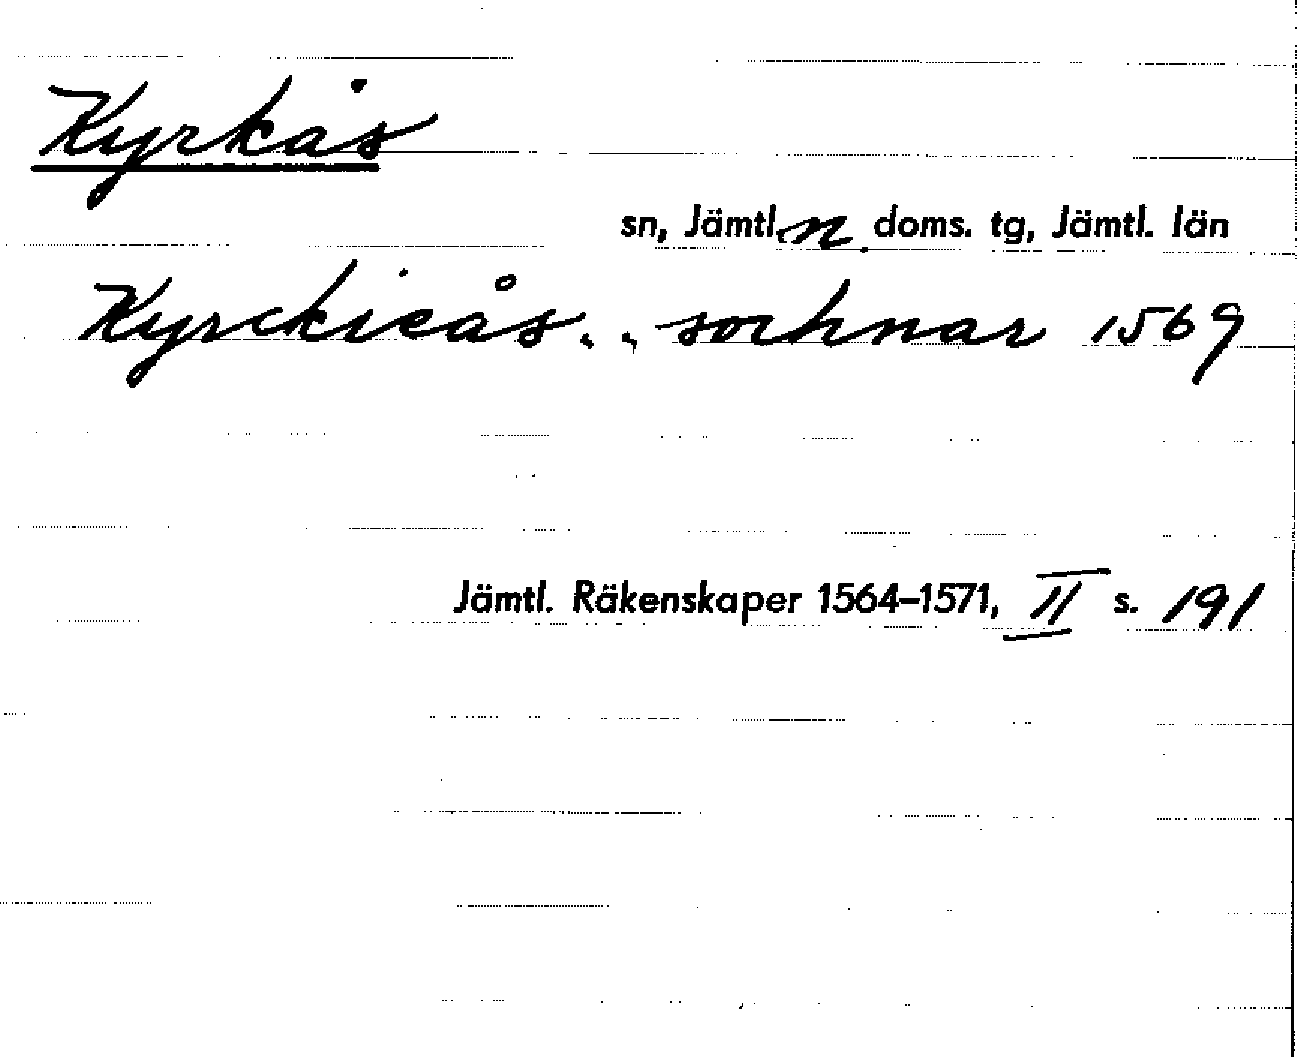 Kyrkås
sn, Jämtl. n doms. tg, Jämtl. län
Kyrckieås . . sochnar 1569
Jämtl. Räkenskaper 1564–1571, II s. 191